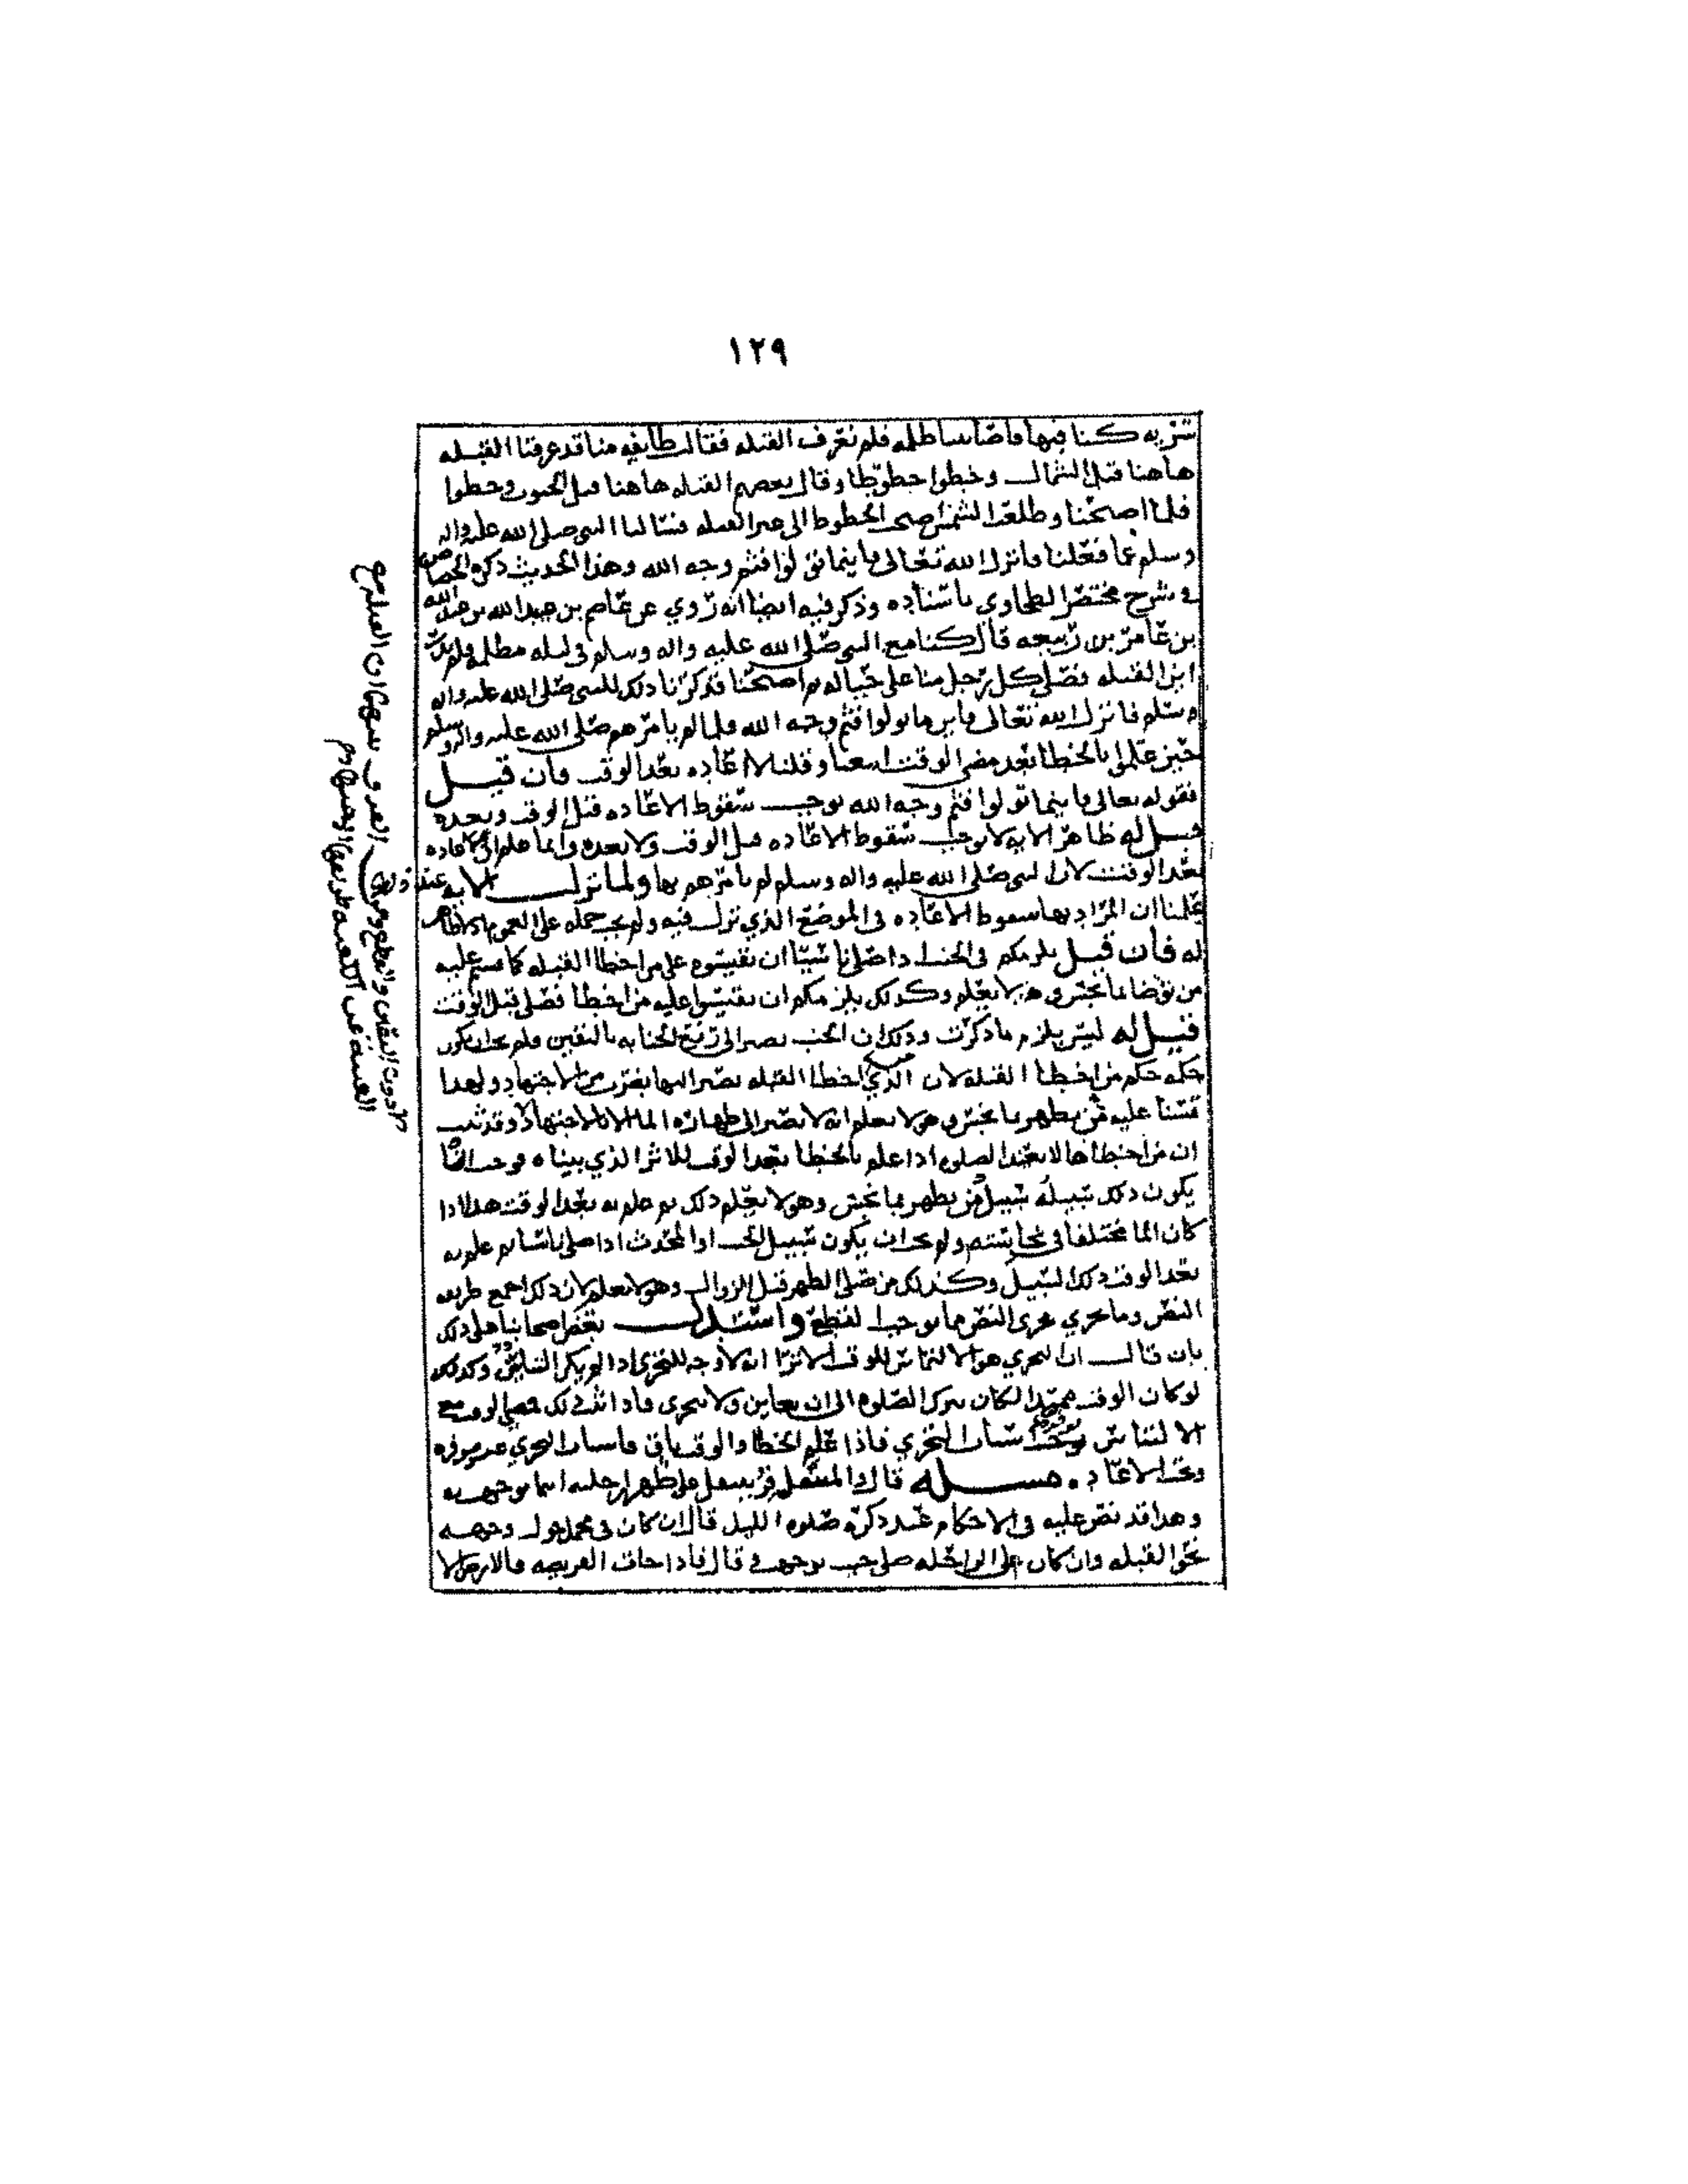 ١٢٩
سريه كنا فيها فاصابنا ظلمه فلم نعرف القبله فقالت طايفه منا قد عرفنا القبله
هاهنا قبل الشمال وخطوا خطوطا وقال بعضهم القبله هاهنا قبل الجنوب وخطوا
فلما اصبحنا وطلعت الشمس اصبحت الخطوط الى غير القبله فسالنا النبي صلى الله عليه واله
وسلم عما فعلنا فانزل الله تعالى فاينما تولوا فثم وجه الله وهذا الحديث ذكره الجصاص
في شرح مختصر الطحاوي باسناده وذكر فيه ايضا انه روي عن عاصم بن عبيد الله عن عبد الله
بن عامر بن ربيعه قال كنا مع النبي صلى الله عليه واله وسلم في ليله مظلمه فلم ندر
اين القبله فصلى كل رجل منا على حياله ثم اصبحنا فذكرنا ذلك للنبي صلى الله عليه واله
وسلم فانزل الله تعالى فاين ما تولوا فثم وجه الله فلما لم يامرهم صلى الله عليه واله وسلم
حين علموا بالخطا بعد مضي الوقت اتبعنا وقلنا لا اعاده بعد الوقت فان قيل
فقوله تعالى فاينما تولوا فثم وجه الله يوجب سقوط الاعاده قبل الوقت وبعده
قيل له ظاهر الايه لا يوجب سقوط الاعاده قبل الوقت ولا بعده وانما علم ان لا اعاده
بعد الوقت لان النبي صلى الله عليه واله وسلم لم يامرهم بها ولما نزلت الايه عند ذلك
علمنا ان المراد بها سقوط الاعاده في الموضع الذي نزلت فيه ولم يجب حمله على العموم اذ لا ظاهر
له فان قيل يلزمكم في الجنب اذا صلى ناسيا ان تقيسوه على من اخطا القبله كما قستم عليه
من توضا بما نجس وهو لا يعلم وكذلك يلزمكم ان تقيسوا عليه من اخطا فصلى قبل الوقت
قيل له ليس يلزم ما ذكرت وذلك ان الجنب يصير الى رفع الجنابه باليقين فلم يجز ان يكون
حكمه حكم من اخطا القبله لان الذي اخطا القبله يصير اليها بضرب من الاجتهاد ولهذا
قسنا عليه من تطهر بما نجس وهو لا يعلم انه لا يصير الى طهاره الما الا بالاجتهاد وقد ثبت
ان من اخطاها لا يعيد الصلوه اذا علم بالخطا بعد الوقت للاثر الذي بيناه فوجب ايضا
يكون ذلك سبيله سبيل من تطهر بما نجس وهو لا يعلم ذلك ثم علم به بعد الوقت هذا اذا
كان الما مختلفا في نجاسته ولم يجز ان يكون سبيل الجنب او المحدث اذا صلى ناسيا ثم علم به
بعد الوقت ذلك السبيل وكذلك من صلى الظهر قبل الزوال وهو لا يعلم لان ذلك اجمع طريقه
النص وما يجري مجرى النص مما يوجب القطع واستدل بعض اصحابنا على ذلك
بان قال ان التحري هو الالتماس للوقت الا ترى انه لا وجه للتحري اذا لم يكن التباس وكذلك
لو كان الوقت ممتدا لكان يترك الصلوه الى ان يعاين ولا يتحرى فاذا ثبت ذلك فضيق الوقت مع
الالتباس يوجب اسباب التحري فاذا علم الخطا والوقت باق فاسباب التحري غير موفره
وعليه الاعاده. مسله قال والمتنفل على ظهر راحلته اينما توجهت به
وهذا قد نص عليه في الاحكام عند ذكره صلوه الليل قال ان كان في محمل حول وجهه
نحو القبله وان كان على الراحله صلى حيث توجهت قال فاذا جات الفريضه فالارض الا